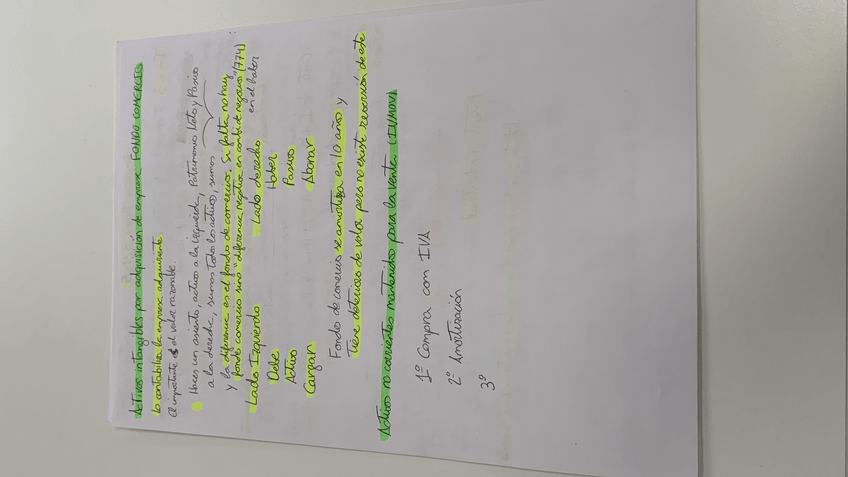 Activos intangibles por adquisición de empresa FONDO COMERCIO
lo contabiliza la empresa adquirente
al importe es el valor razonable.
Haces un asiento, activo a la izquierda, Patrimonio Neto y Pasivo
a la derecha, sumas todos los activos, sumas
y la diferencia es el fondo de comercio. Si falta no hay
fondo comercio sino "diferencia negativa en comb de negocio" (774)
en el haber
Lado Izquierdo Lado derecho
Debe Haber
Activo Pasivo
Cargar Abonar
Fondo de comercio se amortiza en 10 años y
tiene deterioro de valor pero no existe reversión de este
Activos no corrientes mantenidos para la venta (INMOV)
1º Compra con IVA
2º Amortización
3º